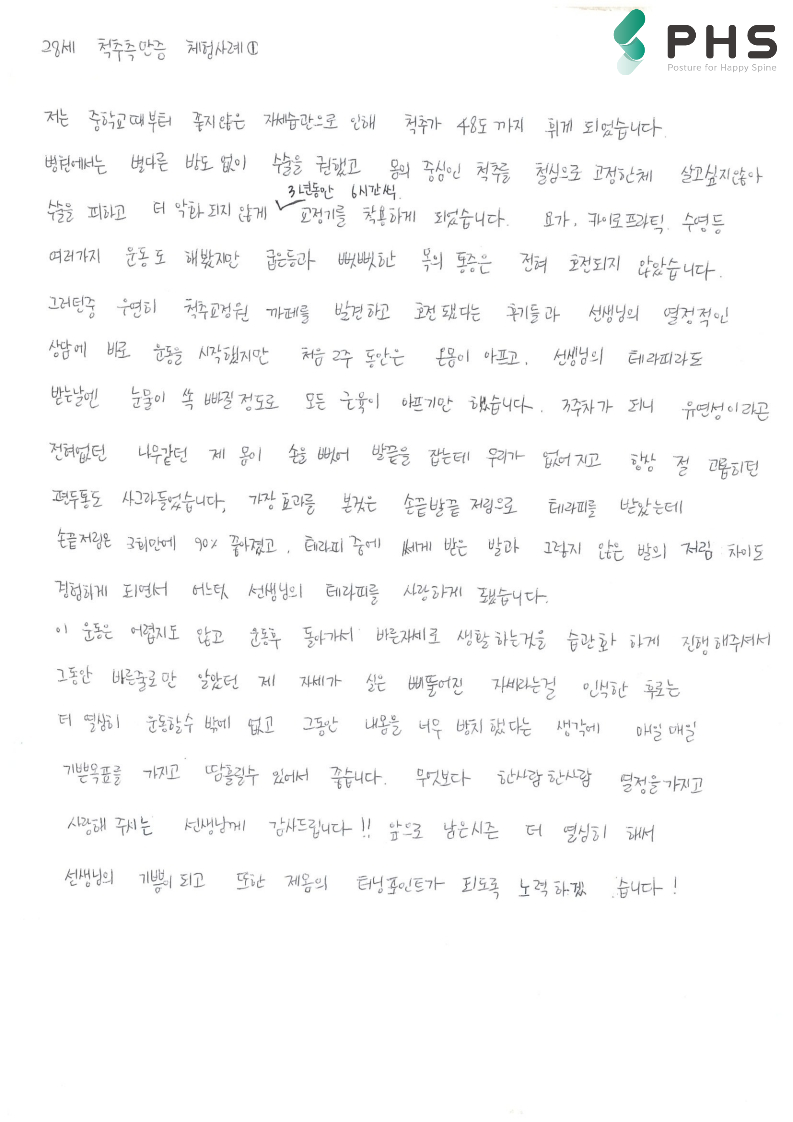 PHS
Posture for Happy Spine
28세 척추측만증 체험사례①
저는 중학교때부터 좋지않은 자세습관으로 인해 척추가 48도까지 휘게 되었습니다.
병원에서는 별다른 방도 없이 수술을 권했고 몸의 중심인 척추를 철심으로 고정한체 살고싶지않아
3년동안 6시간씩.
수술을 피하고 더 악화되지 않게 교정기를 착용하게 되었습니다. 요가, 카이로프라틱, 수영등
여러가지 운동도 해봤지만 굽은등과 뻣뻣한 목의 통증은 전혀 호전되지 않았습니다.
그러던중 우연히 척추교정원 까페를 발견하고 호전됐다는 후기들과 선생님의 열정적인
상담에 바로 운동을 시작했지만 처음 2주 동안은 온몸이 아프고, 선생님의 테라피라도
받는날엔 눈물이 쏙 빠질정도로 모든 근육이 아프기만 했습니다. 3주차가 되니 유연성이라곤
전혀없던 나무같던 제 몸이 손을 뻗어 발끝을 잡는데 무리가 없어지고 항상 절 괴롭히던
편두통도 사그라들었습니다, 가장효과를 본것은 손끝발끝 저림으로 테라피를 받았는데
손끝저림은 3회만에 90% 좋아졌고, 테라피 중에 쎄게 받은 발과 그렇지 않은 발의 저림 차이도
경험하게 되면서 어느덧 선생님의 테라피를 사랑하게 됐습니다.
이 운동은 어렵지도 않고 운동후 돌아가서 바른자세로 생활하는것을 습관화 하게 진행해주셔서
그동안 바른줄로만 알았던 제 자세가 실은 삐뚤어진 자세라는걸 인식한 후로는
더 열심히 운동할수 밖에 없고 그동안 내몸을 너무 방치했다는 생각에 매일매일
기쁜목표를 가지고 땀흘릴수 있어서 좋습니다. 무엇보다 한사람한사람 열정을가지고
사랑해 주시는 선생님께 감사드립니다!! 앞으로 남은시즌 더 열심히 해서
선생님의 기쁨이되고 또한 제몸의 터닝포인트가 되도록 노력하겠습니다!